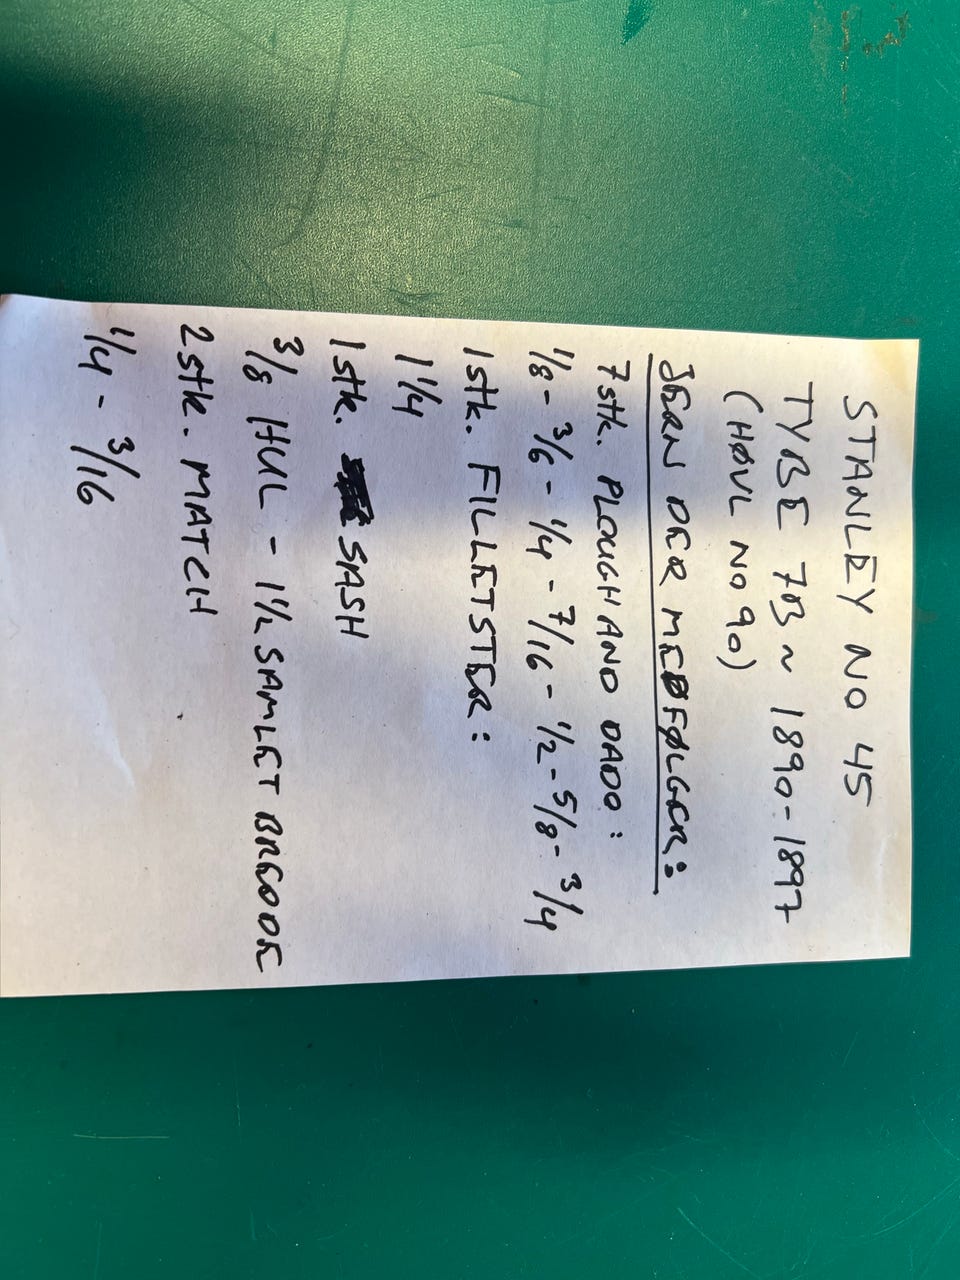 STANLEY NO 45
TYBE 7B ~ 1890-1897
(HØVL NO 90)
JERN DER MEDFØLGER:
7stk. PLOUGH AND DADO:
1/8 - 3/6 - 1/4 - 7/16 - 1/2 - 5/8 - 3/4
1stk. FILLETSTER:
1 1/4
1stk. SASH
3/8 HUL - 1 1/2 SAMLET BREDDE
2stk. MATCH
1/4 - 3/16